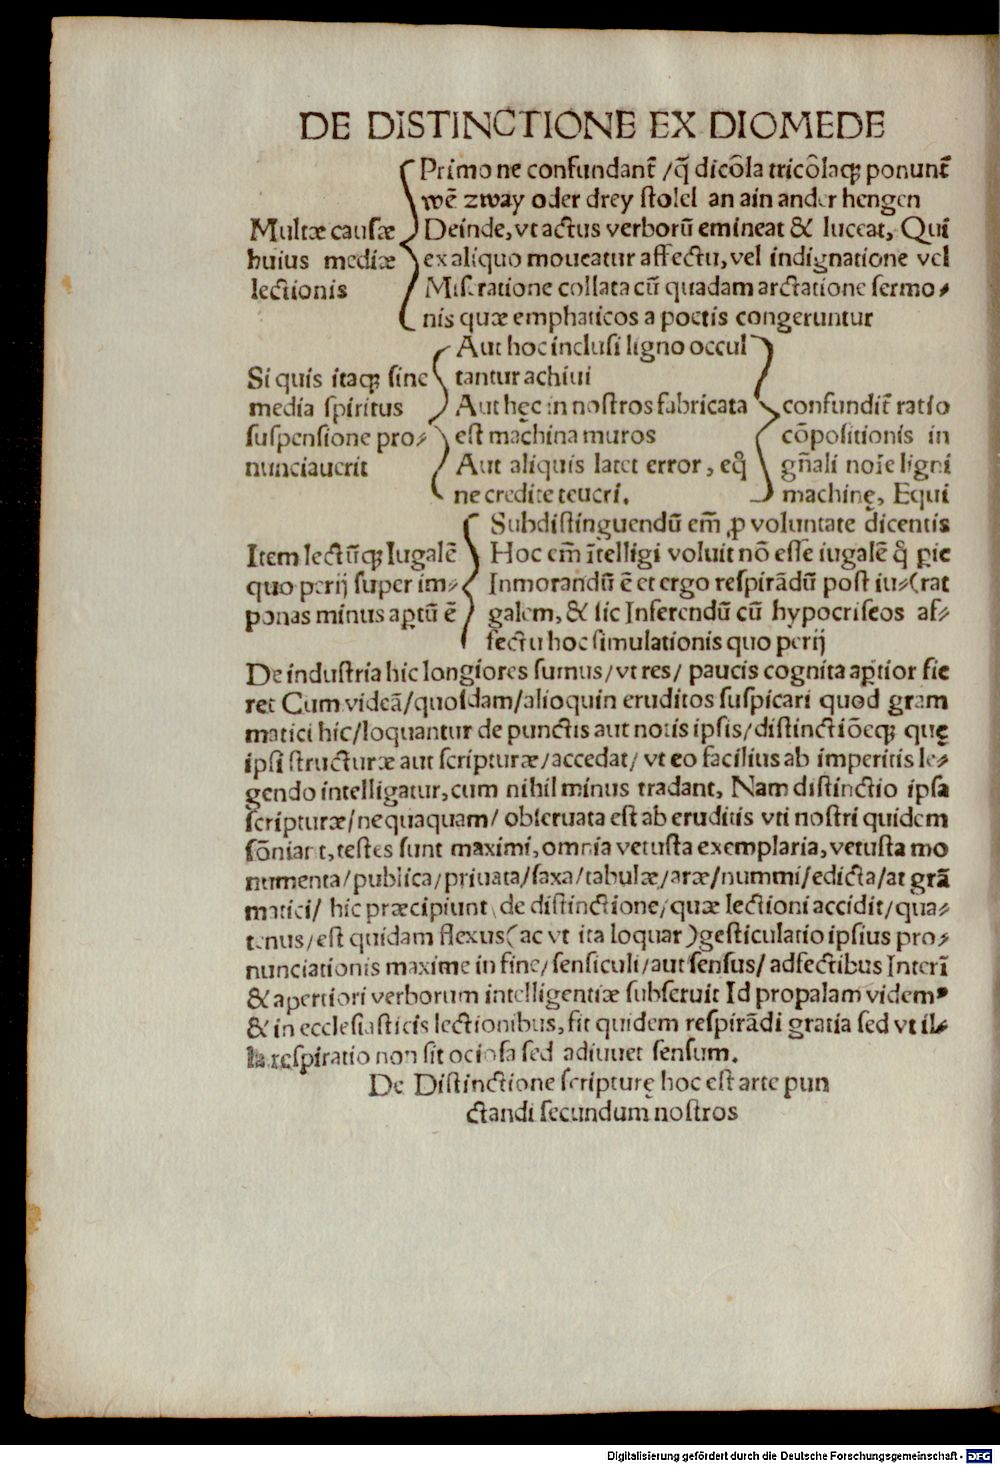 DE DISTINCTIONE EX DIOMEDE
Multæ causæ
huius mediæ
lectionis
Primo ne confundant̃ /q̃ dicõla tricõlaqꝫ ponunt̃
wẽ zway oder drey stolel an ain ander hengen
Deinde, vt actus verborũ emineat & luceat, Qui
ex aliquo moueatur affectu, vel indignatione vel
Miseratione collata cũ quadam arctatione sermo⸗
nis quæ emphaticos a poetis congeruntur
Si quis itaqꝫ sine
media spiritus
suspensione pro⸗
nunciauerit
Aut hoc inclusi ligno occul
tantur achiui
Aut hęc in nostros fabricata
est machina muros
Aut aliquis latet error, eq̊
ne credite teucri.
confundit̃ ratio
cõpositionis in
gñali noĩe ligni
machinę, Equi
Item lectũqꝫ Iugalẽ
quo perij super im⸗
ponas minus aptũ ẽ
Subdistinguendũ em̃ ꝓ voluntate dicentis
Hoc em̃ ĩtelligi voluit nõ esse iugalẽ q̊ ꝑie
Inmorandũ ẽ et ergo respirãdũ post iu⸗(rat
galem, & sic Inferendũ cũ hypocriseos af⸗
fectu hoc simulationis quo perij
De industria hic longiores sumus/vt res/ paucis cognita aptior fie
ret Cum videã/quosdam/alioquin eruditos suspicari quod gram
matici hic/loquantur de punctis aut notis ipsis/distinctiõeqꝫ quę
ipsi structuræ aut scripturæ/accedat/ vt eo facilius ab imperitis le⸗
gendo intelligatur, cum nihil minus tradant, Nam distinctio ipsa
scripturæ/nequaquam/ obseruata est ab eruditis vti nostri quidem
sõniant, testes sunt maximi, omnia vetusta exemplaria, vetusta mo
numenta/publica/priuata/saxa/tabulæ/aræ/nummi/edicta/at grã
matici/ hic præcipiunt de distinctione/quæ lectioni accidit/qua⸗
tenus/est quidam flexus(ac vt ita loquar)gesticulatio ipsius pro⸗
nunciationis maxime in fine/sensiculi/aut sensus/ adfectibus Interĩ
& apertiori verborum intelligentiæ subseruit Id propalam videmꝰ
& in ecclesiasticis lectionibus, fit quidem respirãdi gratia sed vt il⸗
la respiratio non sit ociosa sed adiuuet sensum.
De Distinctione scripturę hoc est arte pun
ctandi secundum nostros
Digitalisierung gefördert durch die Deutsche Forschungsgemeinschaft - DFG